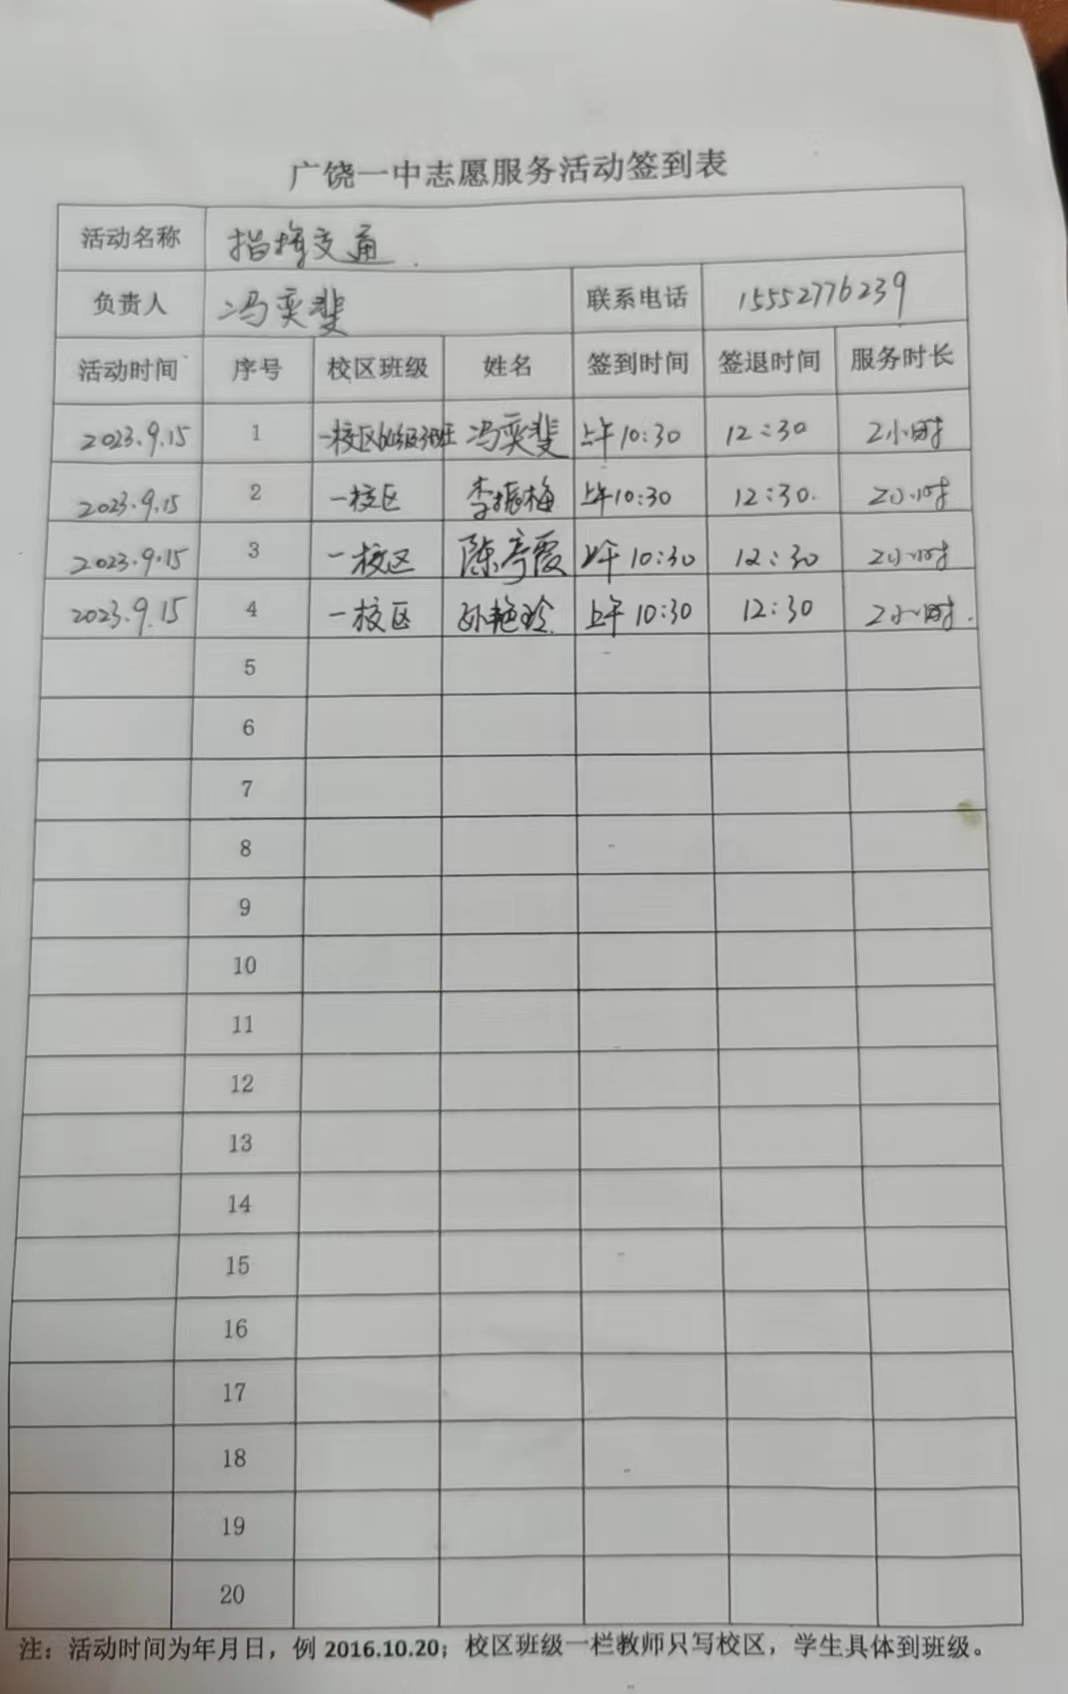 广饶一中志愿服务活动签到表
活动名称 指挥交通
负责人 冯奕斐 联系电话 15552776239
活动时间 序号 校区班级 姓名 签到时间 签退时间 服务时长
2023.9.15 1 一校区 冯奕斐 上午10:30 12:30 2小时
2023.9.15 2 一校区 李振梅 上午10:30 12:30. 2小时
2023.9.15 3 一校区 陈亭霞 上午10:30 12:30 2小时
2023.9.15 4 一校区 孙艳玲 上午10:30 12:30 2小时.
5
6
7
8
9
10
11
12
13
14
15
16
17
18
19
20
注：活动时间为年月日，例 2016.10.20；校区班级一栏教师只写校区，学生具体到班级。